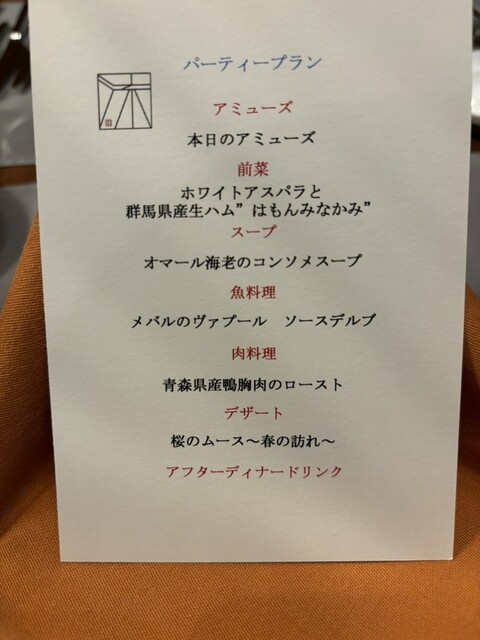 パーティープラン
アミューズ
本日のアミューズ
前菜
ホワイトアスパラと
群馬県産生ハム”はもんみなかみ”
スープ
オマール海老のコンソメスープ
魚料理
メバルのヴァプール　ソースデルブ
肉料理
青森県産鴨胸肉のロースト
デザート
桜のムース～春の訪れ～
アフターディナードリンク